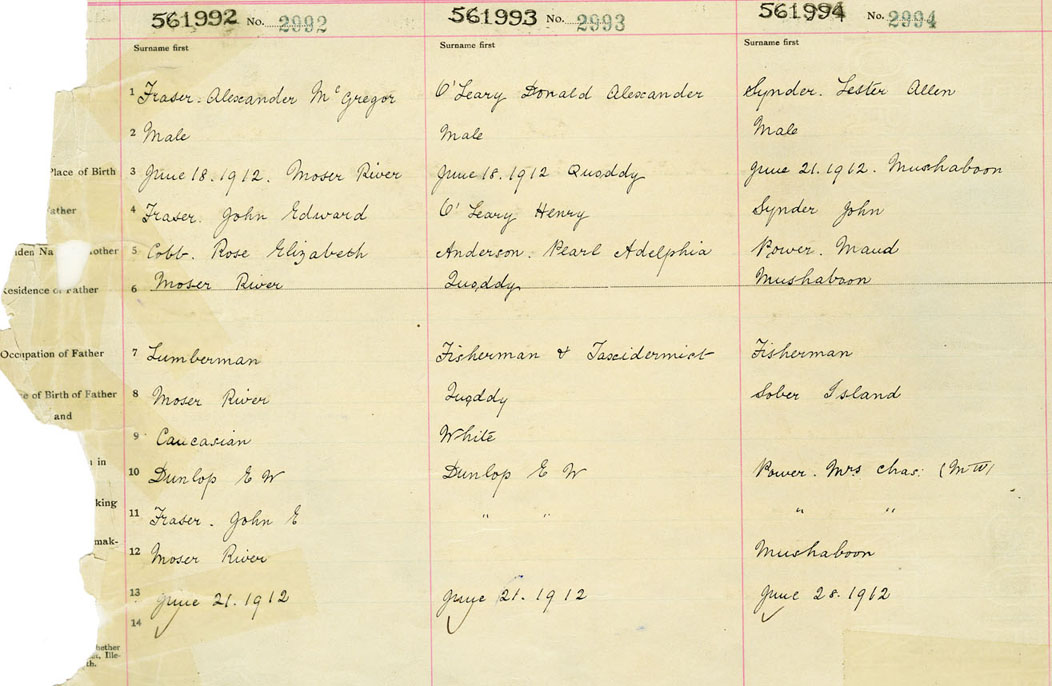 561992 No. 2992 561993 No. 2993 561994 No. 2994
Surname first Surname first Surname first
1 Fraser. Alexander McGregor O'Leary Donald Alexander Synder. Lester Allen
2 Male Male Male
Place of Birth 3 June 18. 1912. Moser River June 18. 1912 Quoddy June 21. 1912. Mushaboon
ather 4 Fraser. John Edward O'Leary Henry Synder John
iden Na other 5 Cobb. Rose Elizabeth Anderson. Pearl Adelphia Power. Maud
Residence of Father 6 Moser River Quoddy Mushaboon
Occupation of Father 7 Lumberman Fisherman & Taxidermist Fisherman
e of Birth of Father 8 Moser River Quoddy Sober Island
and
9 Caucasian White
n in 10 Dunlop E W Dunlop E W Power. Mrs Chas. (M W)
king 11 Fraser. John E " " " "
mak- 12 Moser River Mushaboon
13 June 21. 1912 June 21. 1912 June 28. 1912
14
hether
t, Ille-
th.